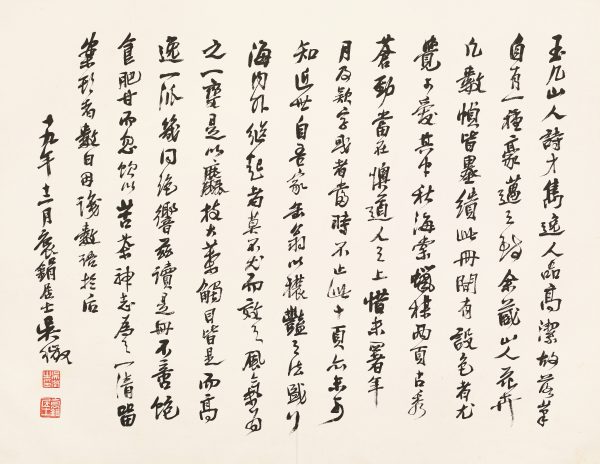 玉几山人詩才雋逸人品高潔故落筆
自有一種豪邁之致余藏山人花卉
凡數幀皆墨繢此冊間有設色者尤
覺可愛其中秋海棠蠟梅兩頁古秀
蒼勁當在懊道人之上惜未署年
月及款字或者當時不止此十頁亦未可
知近世自吾家缶翁以穠豔之法盛行
海内外繼起者莫不尤而效之風氣為
之一變是以麤枝大葉觸目皆是而高
逸一派幾同絕響茲讀是冊不啻飽
食肥甘而忽飲以苦茶神志為之一清留
案頭者數日因識數語於后
十九年十二月袌鋗居士吳徵